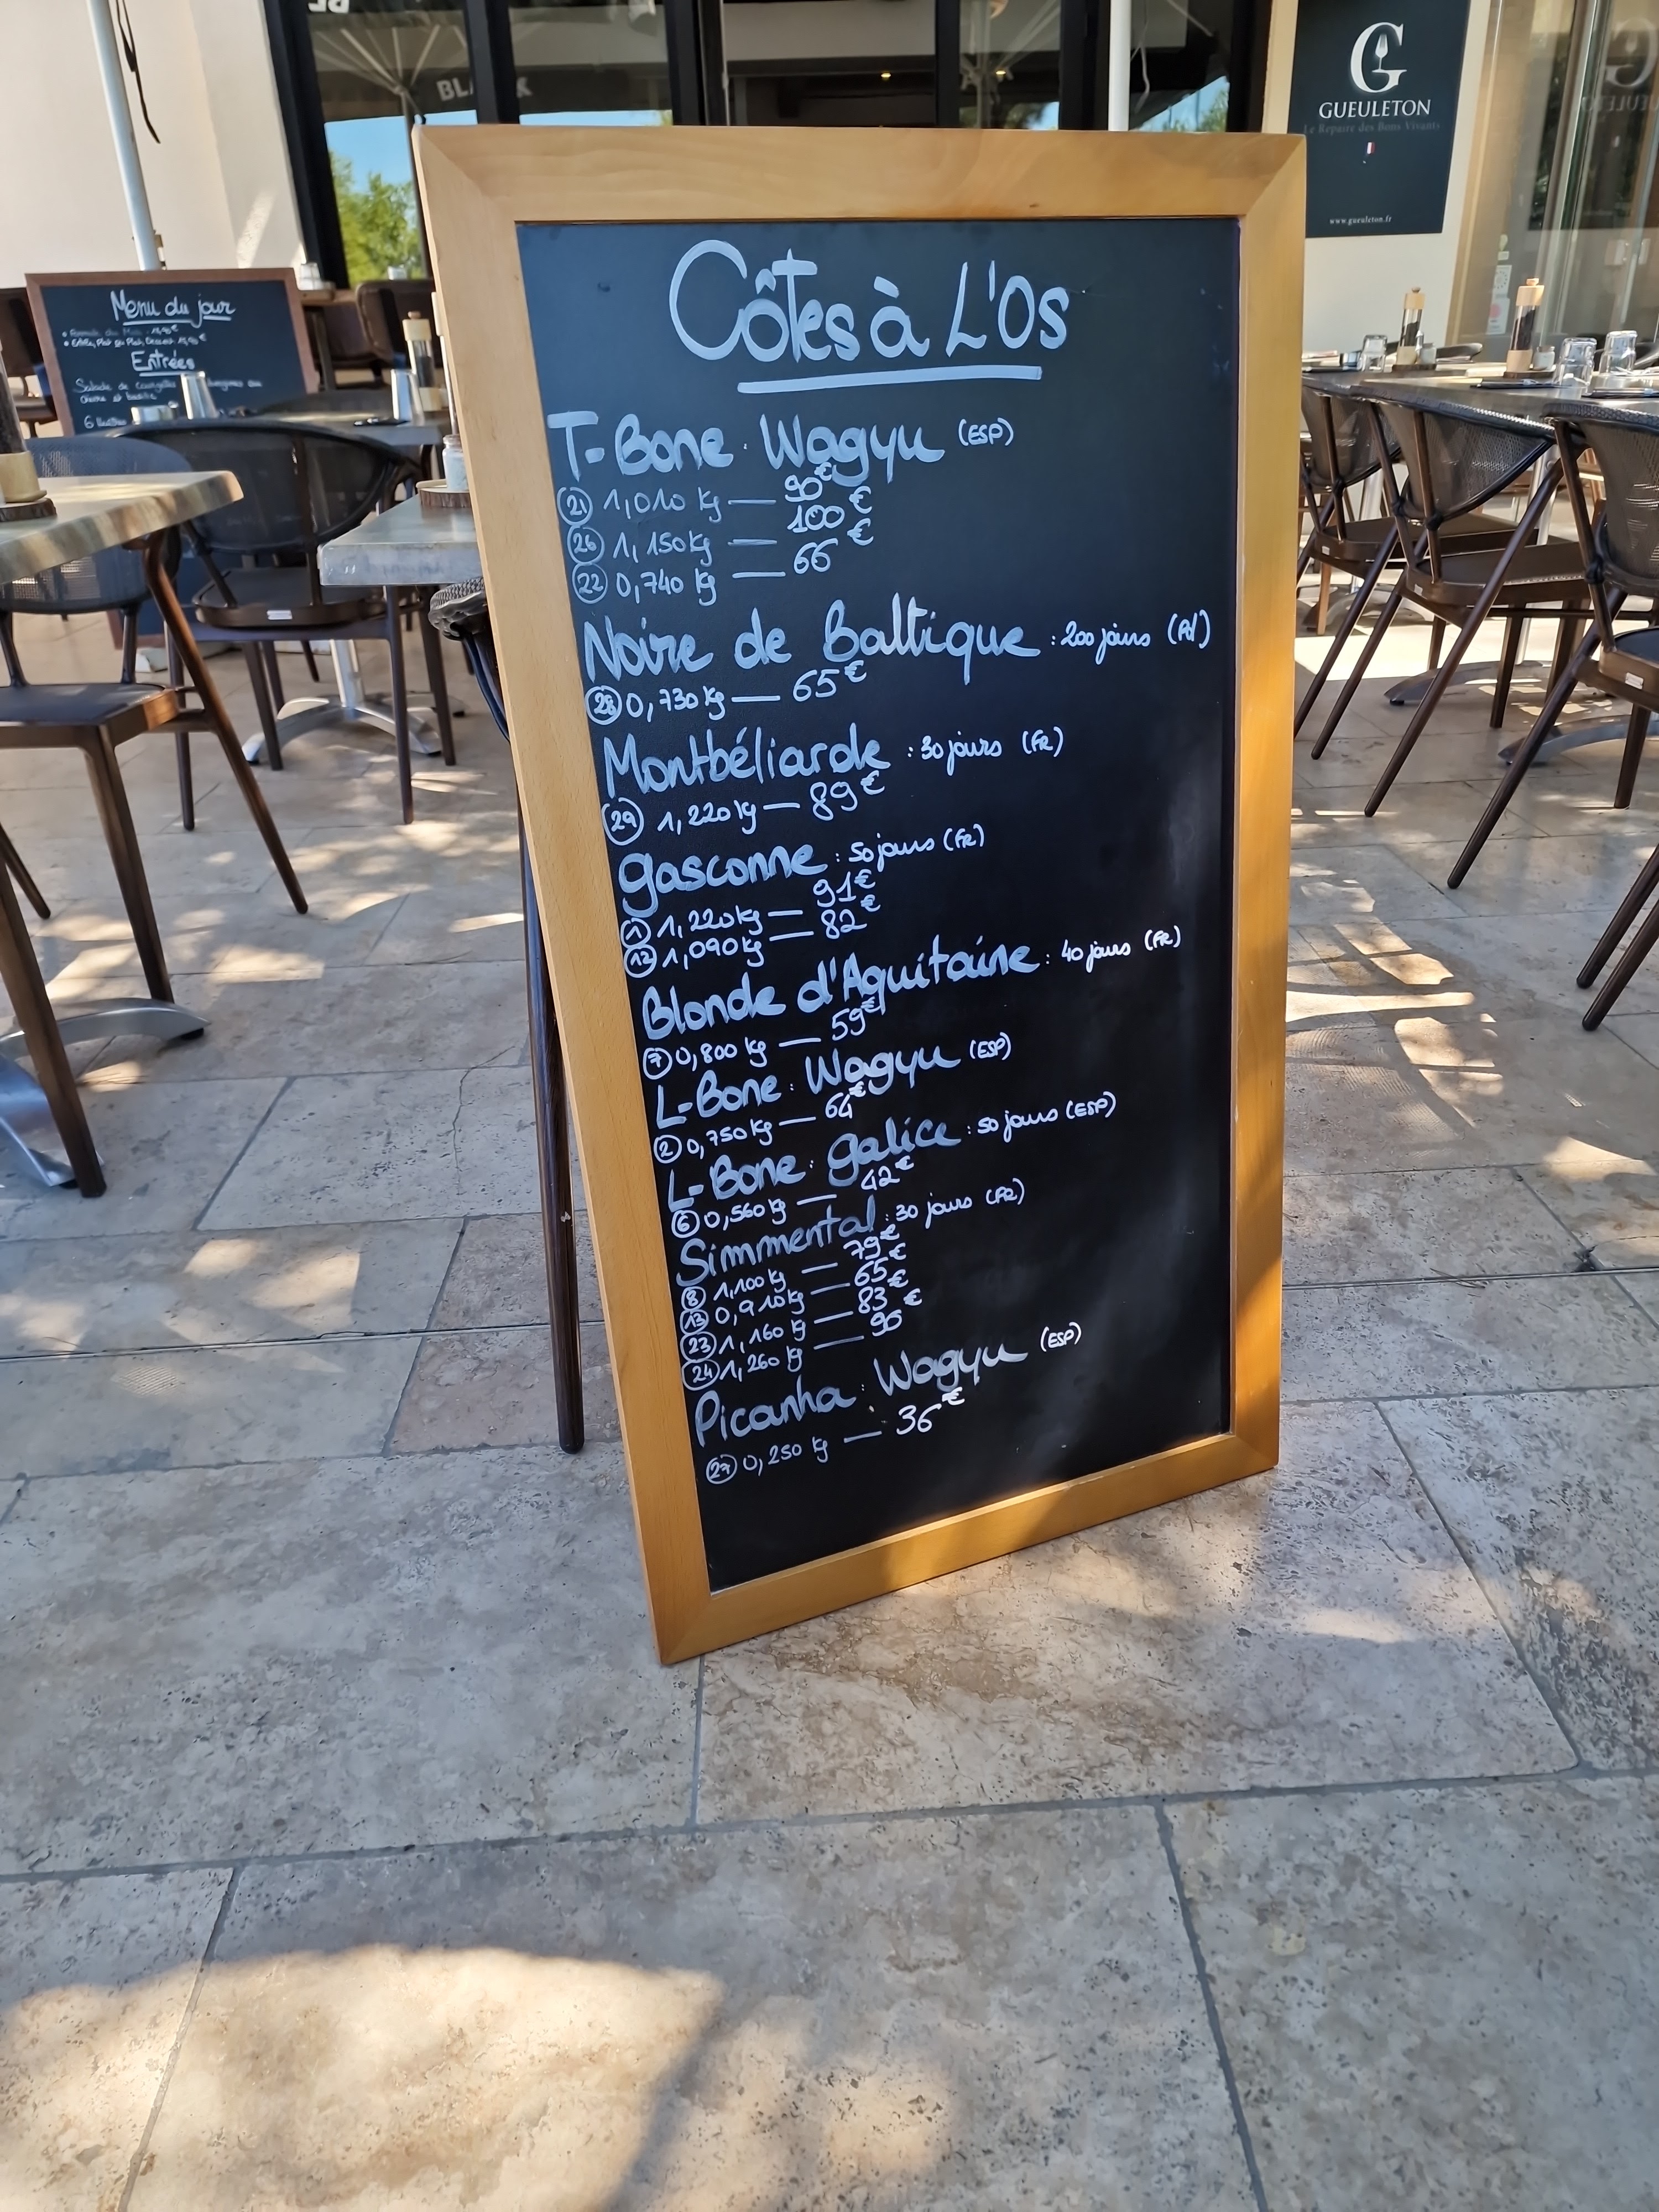 BLACK
G
GUEULETON
Le Repaire des Bons Vivants
www.gueuleton.fr
Menu du jour
Entrées
Salade de courgettes
chèvre et basilic
6 Huîtres
Côtes à L'Os
T-Bone : Wagyu (ESP)
21 1,010 kg — 90€
26 1,150 kg — 100€
22 0,740 kg — 66€
Noire de Baltique : 200 jours
28 0,730 kg — 65€
Montbéliarde : 30 jours (FR)
29 1,220 kg — 89€
Gasconne : 50 jours (FR)
1 1,220 kg — 91€
12 1,090 kg — 82€
Blonde d'Aquitaine : 40 jours (FR)
7 0,800 kg — 59€
L-Bone : Wagyu (ESP)
2 0,750 kg — 64€
L-Bone : Galice : 50 jours (ESP)
6 0,560 kg — 42€
Simmental : 30 jours (FR)
8 1,100 kg — 79€
13 0,910 kg — 65€
23 1,160 kg — 83€
24 1,260 kg — 90€
Picanha : Wagyu (ESP)
27 0,250 kg — 36€